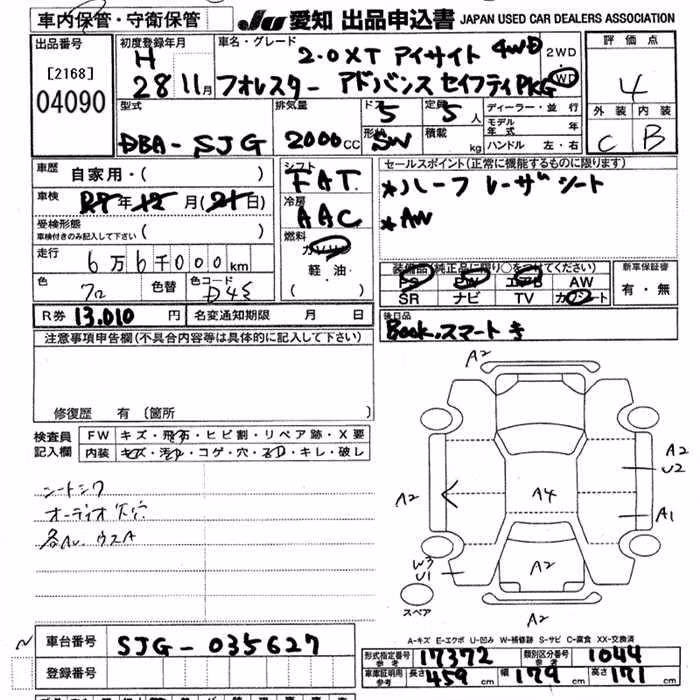 車内保管・守衛保管 JU 愛知 出品申込書 JAPAN USED CAR DEALERS ASSOCIATION
出品番号
[2168]
04090
初度登録年月
H
28 11月
車名・グレード
2.0XT アイサイト 4WD
フォレスター アドバンスセイフティPKG
2WD
4WD
評価点
4
外装 内装
C B
型式
DBA-SJG
排気量
2000cc
ドア
5
定員
5人
形状
SW
積載
kg
ディーラー・並行
モデル年式 年
ハンドル 左・右
車歴 自家用・( )
車検 R7年12月(21日)
受検形態
車検付きのみ記入して下さい ( )
走行
6万6千000km
色
クロ
色替
色コード
D4S
シフト
FAT
冷房
AAC
燃料
ガソリン
軽油
( )
セールスポイント(正常に機能するものに限ります)
*ハーフレーザーシート
*AW
装備品(純正品に限り○をつけてください)
PS PW エアB AW
SR ナビ TV カワシート
新車保証書
有・無
R券 13.010円 名変通知期限 月 日
後日品
Book.スマートキ
注意事項申告欄(不具合内容等は具体的に記入して下さい)
修復歴 有 〔箇所 〕
検査員記入欄
FW キズ・飛石・ヒビ割・リペア跡・X要
内装 キズ・汚れ・コゲ・穴・スレ・キレ・破し
シートシワ
オーディオ穴
各AW.ウスA
A2
A2
U2
A2
A4
A1
W3
U1
A2
スペア
A2
A-キズ E-エクボ U-凹み W-補修跡 S-サビ C-腐食 XX-交換済
車台番号 SJG-035627
登録番号
形式指定番号 参考 17372 類別区分番号 参考 1044
車庫証明用 参考 長さ 459cm 幅 179cm 高さ 171cm